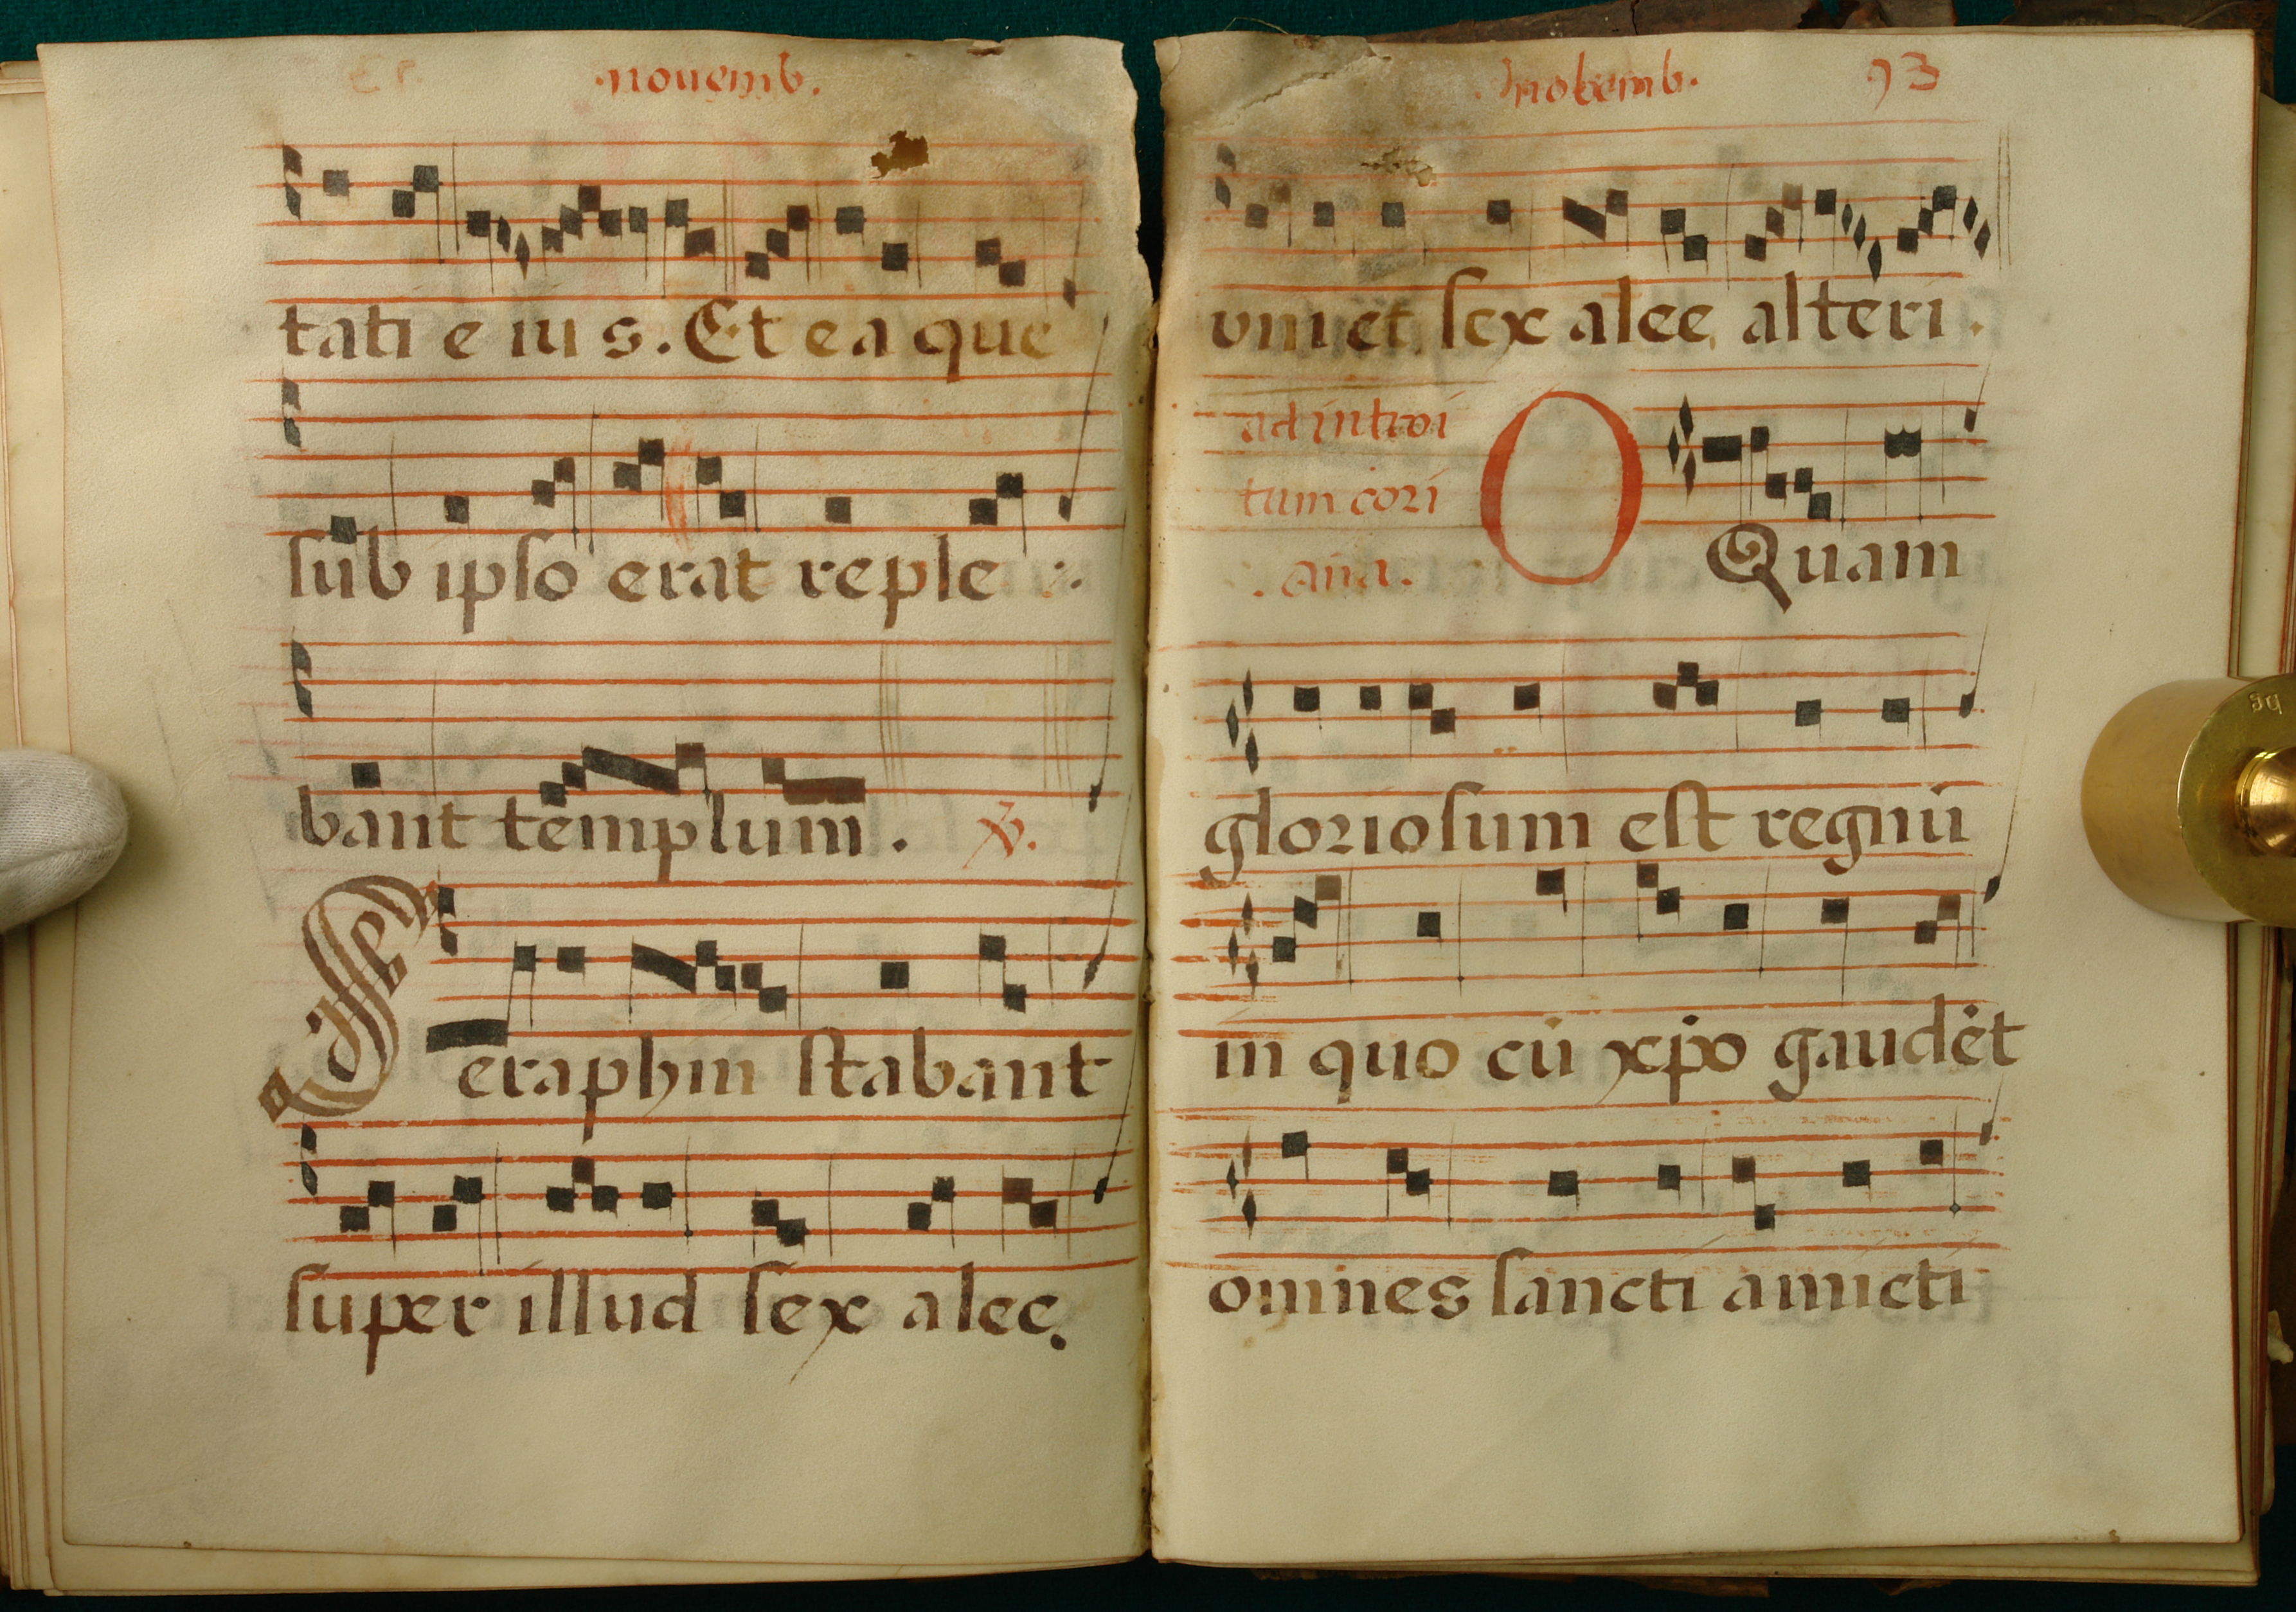 .nouemb.
tati e iu s. Et ea que
sub ipso erat reple
bant templum. V.
Seraphin stabant
super illud sex alee.
nobemb. 93
uni et sex alee alteri.
ad introi
tum cori
.aña.
O Quam
gloriosum est regnū
in quo cū xp̄o gaudēt
omnes sancti amicti